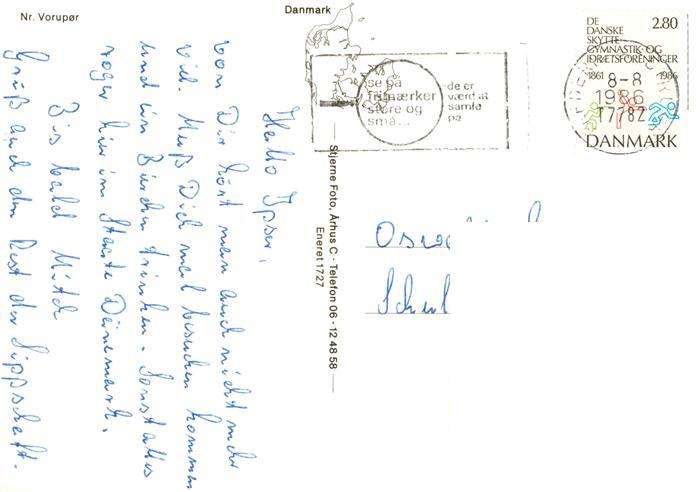 Nr. Vorupør
Danmark
Hallo Ypser,
von Dir hört man auch nicht mehr
viel. Muß Dich mal besuchen kommen
und ein Bierchen trinken. Sonst alles
roger hier im Staate Dänemark.
Bis bald
Gruß auch den Rest der Sippschaft.
Stjerne Foto, Århus C - Telefon 06 - 12 48 58
Eneret 17/27
se på
frimærker
store og
små...
de er
værd at
samle
på
DE
DANSKE
SKYTTE
GYMNASTIK- OG
IDRÆTSFORENINGER
2.80
1861 1986
8-8
1986
DANMARK